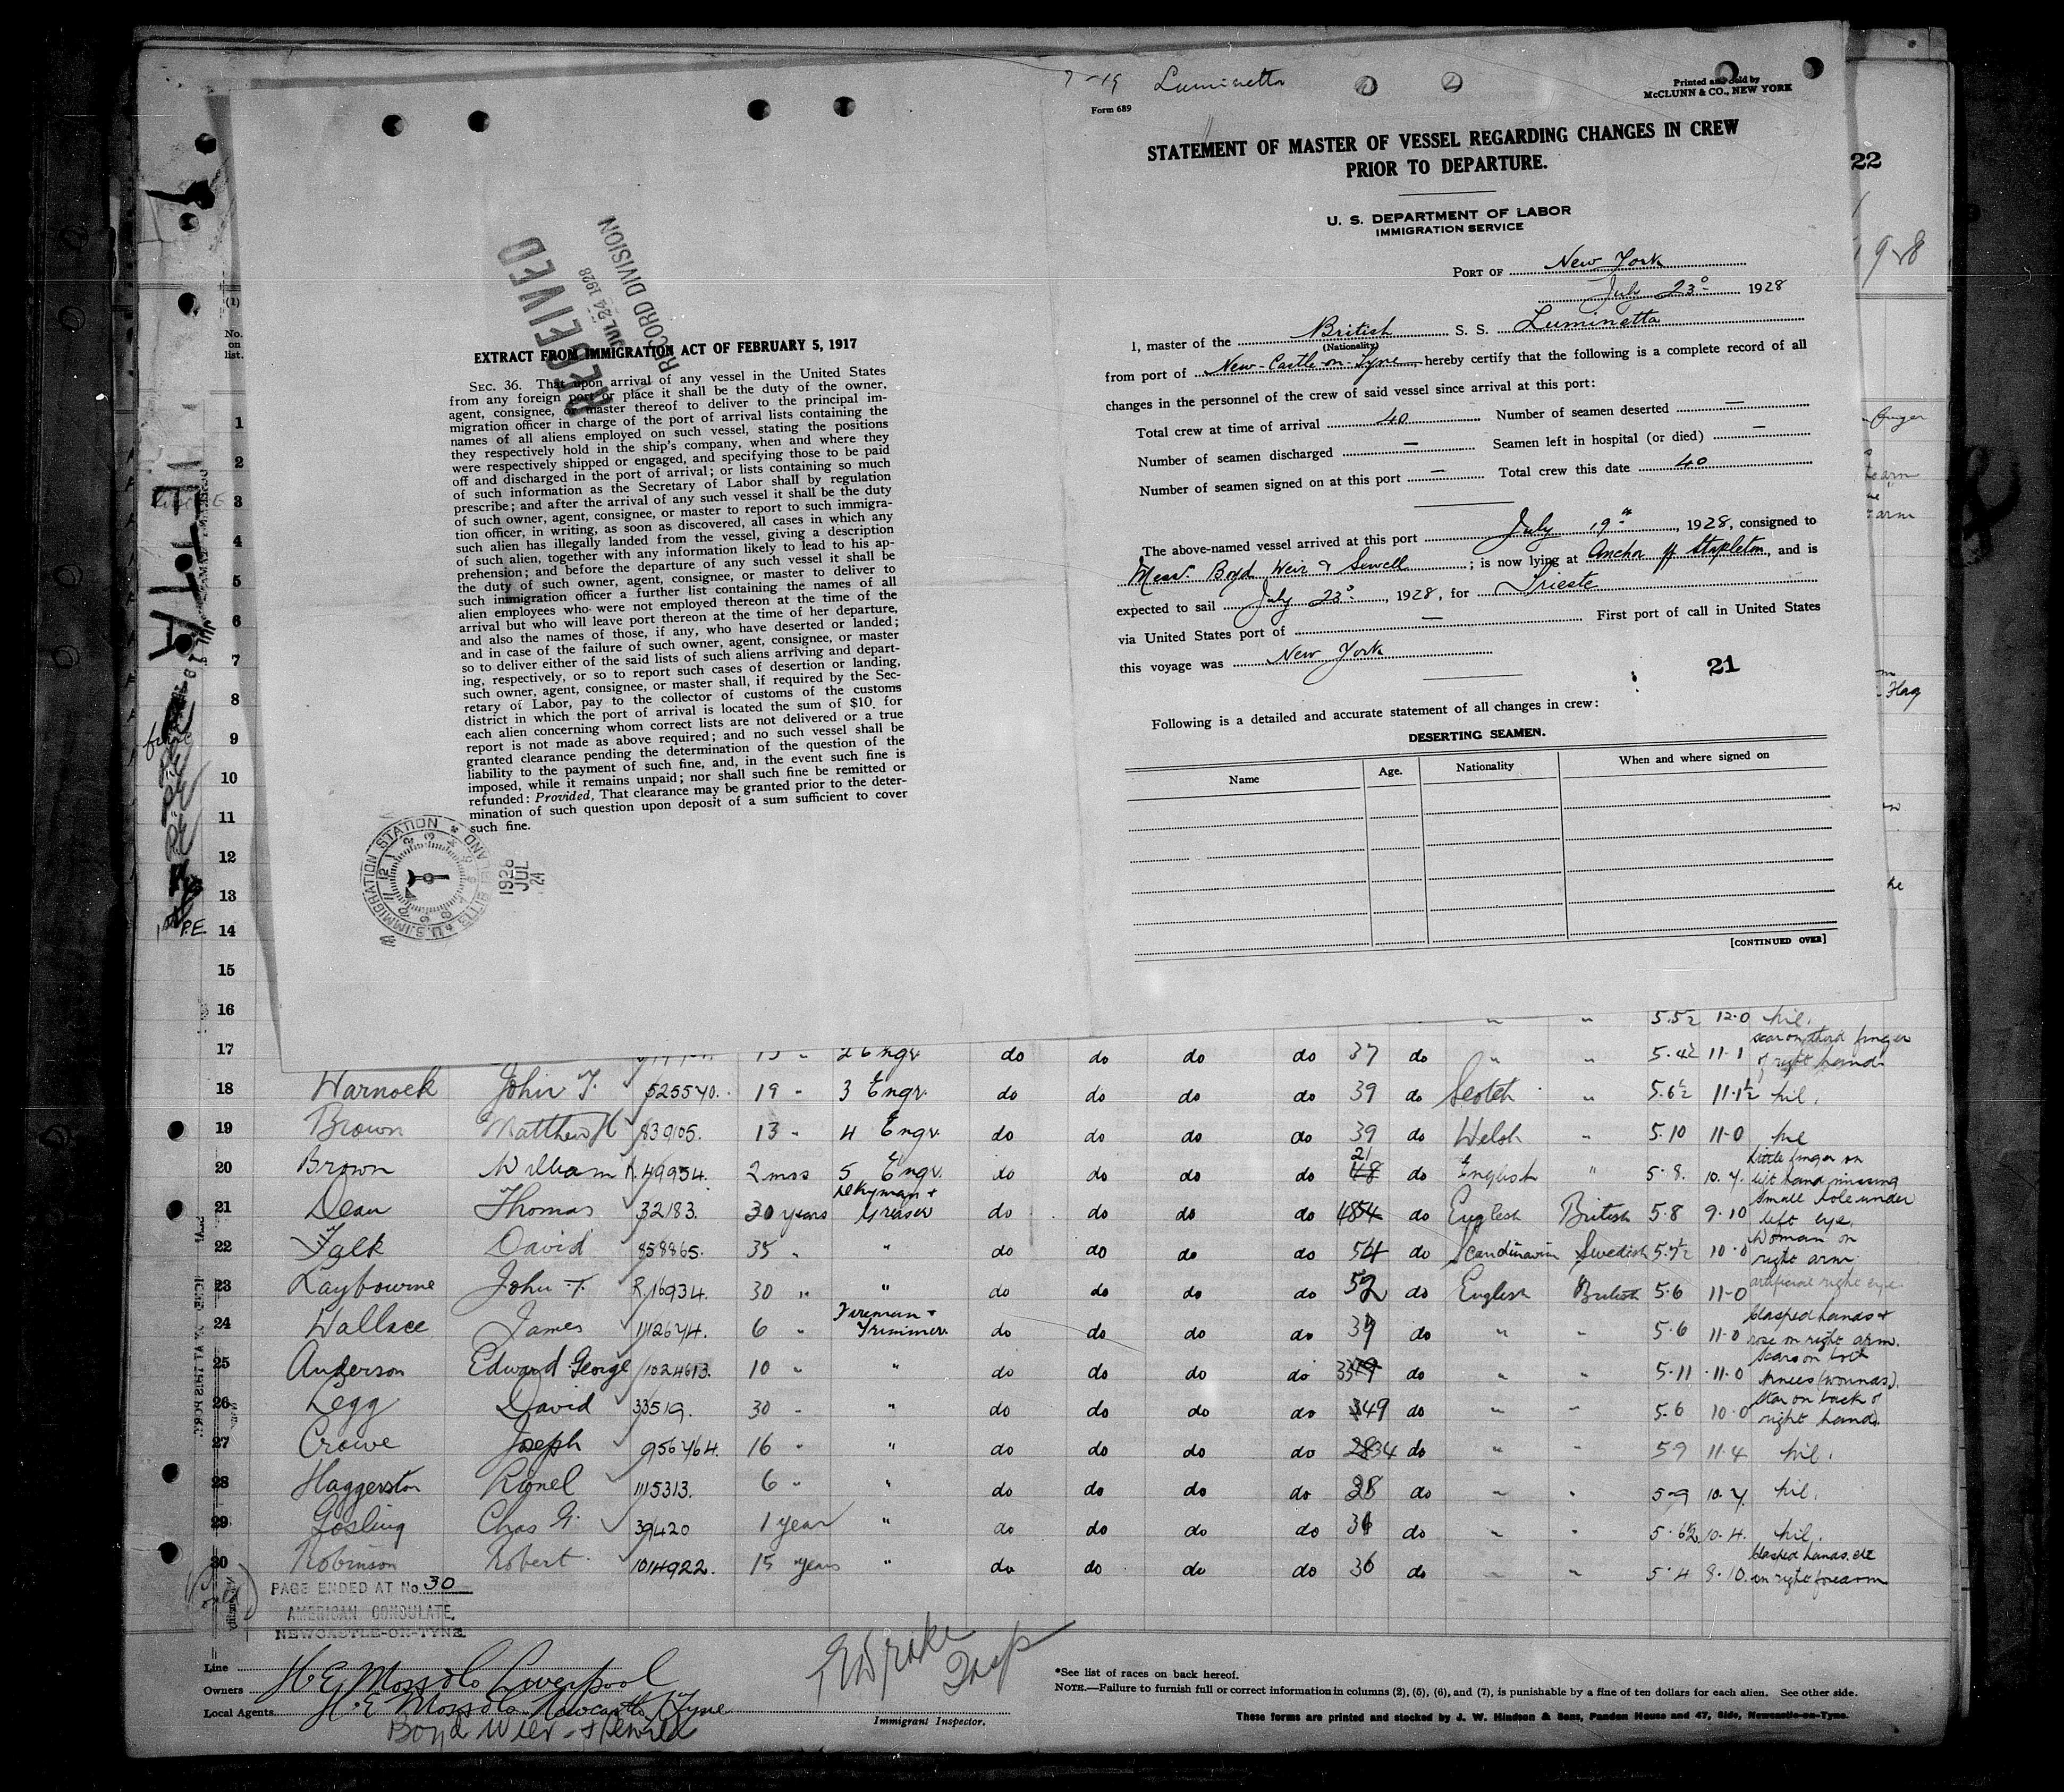 7-19 Luminetta
Form 689
Printed and sold by
McCLUNN & CO., NEW YORK
STATEMENT OF MASTER OF VESSEL REGARDING CHANGES IN CREW
PRIOR TO DEPARTURE.
U. S. DEPARTMENT OF LABOR
IMMIGRATION SERVICE
PORT OF New York
July 23º 1928
I, master of the British S. S. Luminetta
(Nationality)
from port of New-Castle-on-Tyne, hereby certify that the following is a complete record of all
changes in the personnel of the crew of said vessel since arrival at this port:
Total crew at time of arrival 40 Number of seamen deserted —
Number of seamen discharged — Seamen left in hospital (or died) —
Number of seamen signed on at this port — Total crew this date 40
The above-named vessel arrived at this port July 19th, 1928, consigned to
Messr. Boyd Weir & Sewell; is now lying at Anchor off Stapleton, and is
expected to sail July 23º, 1928, for Trieste
via United States port of — First port of call in United States
this voyage was New York
21
Following is a detailed and accurate statement of all changes in crew:
DESERTING SEAMEN.
Name Age. Nationality When and where signed on
[CONTINUED OVER]
RECEIVED
JUL 24 1928
RECORD DIVISION
EXTRACT FROM IMMIGRATION ACT OF FEBRUARY 5, 1917
SEC. 36. That upon arrival of any vessel in the United States
from any foreign port or place it shall be the duty of the owner,
agent, consignee, or master thereof to deliver to the principal im-
migration officer in charge of the port of arrival lists containing the
names of all aliens employed on such vessel, stating the positions
they respectively hold in the ship's company, when and where they
were respectively shipped or engaged, and specifying those to be paid
off and discharged in the port of arrival; or lists containing so much
of such information as the Secretary of Labor shall by regulation
prescribe; and after the arrival of any such vessel it shall be the duty
of such owner, agent, consignee, or master to report to such immigra-
tion officer, in writing, as soon as discovered, all cases in which any
such alien has illegally landed from the vessel, giving a description
of such alien, together with any information likely to lead to his ap-
prehension; and before the departure of any such vessel it shall be
the duty of such owner, agent, consignee, or master to deliver to
such immigration officer a further list containing the names of all
alien employees who were not employed thereon at the time of the
arrival but who will leave port thereon at the time of her departure,
and also the names of those, if any, who have deserted or landed;
and in case of the failure of such owner, agent, consignee, or master
so to deliver either of the said lists of such aliens arriving and depart-
ing, respectively, or so to report such cases of desertion or landing,
such owner, agent, consignee, or master shall, if required by the Sec-
retary of Labor, pay to the collector of customs of the customs
district in which the port of arrival is located the sum of $10 for
each alien concerning whom correct lists are not delivered or a true
report is not made as above required; and no such vessel shall be
granted clearance pending the determination of the question of the
liability to the payment of such fine, and, in the event such fine is
imposed, while it remains unpaid; nor shall such fine be remitted or
refunded: Provided, That clearance may be granted prior to the deter-
mination of such question upon deposit of a sum sufficient to cover
such fine.
U.S. IMMIGRATION STATION ELLIS ISLAND
1928 JUL 24
22
(1)
No.
on
list.
1
2
3
4
5
6
7
8
9
10
11
12
13
14
15
16 " " 5.5½ 12.0 nil.
17 2 Engr. do do do do 37 do " " 5.4½ 11.1 scar on third finger of right hand
18 Warnock John T. 525540. 19 " 3 Engr. do do do do 39 do Scotch " 5.6½ 11.1½ nil.
19 Brown Matthew H 839105. 13 " 4 Engr. do do do do 39 do Welsh " 5.10 11-0 nil
20 Brown William R.49954. 2 mos 5 Engr. do do do do 21 do English " 5.8. 10.7. little finger on left hand missing
21 Dean Thomas 32183. 30 years Dkyman & Greaser do do do do do English British 5.8 9.10 small hole under left eye.
22 Falk David 858865. 35 " " do do do do 54 do Scandinavian Swedish 5.7½ 10.0 Woman on right arm
23 Laybourne John F. R,16934. 30 " " do do do do 52 do English British 5.6 11-0 artificial right eye
24 Wallace James 1112674. 6 " Fireman & Trimmer do do do do 39 do " " 5.6 11.0 clasped hands & rose on right arm.
25 Anderson Edward George 1024613. 10 " " do do do do do " " 5.11 11.0 scars on both knees (wounds).
26 Legg David 33519. 30 " " do do do do 49 do " " 5.6 10.0 star on back of right hand.
27 Crowe Joseph 956464. 16 " " do do do do 34 do " " 5.9 11.4 nil.
28 Haggerston Lionel 1115313. 6 " " do do do do 28 do " " 5-9 10.7. nil.
29 Gosling Chas G. 39420 1 year " do do do do do " " 5.6½ 10.4. nil.
30 Robinson Robert 1014922. 15 years " do do do do 36 do " " 5.4 9.10. clasped hands etc on right forearm
PAGE ENDED AT No. 30
AMERICAN CONSULATE,
NEWCASTLE-ON-TYNE.
Line
Owners H E Moss & Co Liverpool
Local Agents H. E Moss & Co. Newcastle o/Tyne
Boyd Wier & Sewell
Immigrant Inspector.
*See list of races on back hereof.
NOTE.—Failure to furnish full or correct information in columns (2), (5), (6), and (7), is punishable by a fine of ten dollars for each alien. See other side.
These forms are printed and stocked by J. W. Hindson & Sons, Pandon House and 47, Side, Newcastle-on-Tyne.